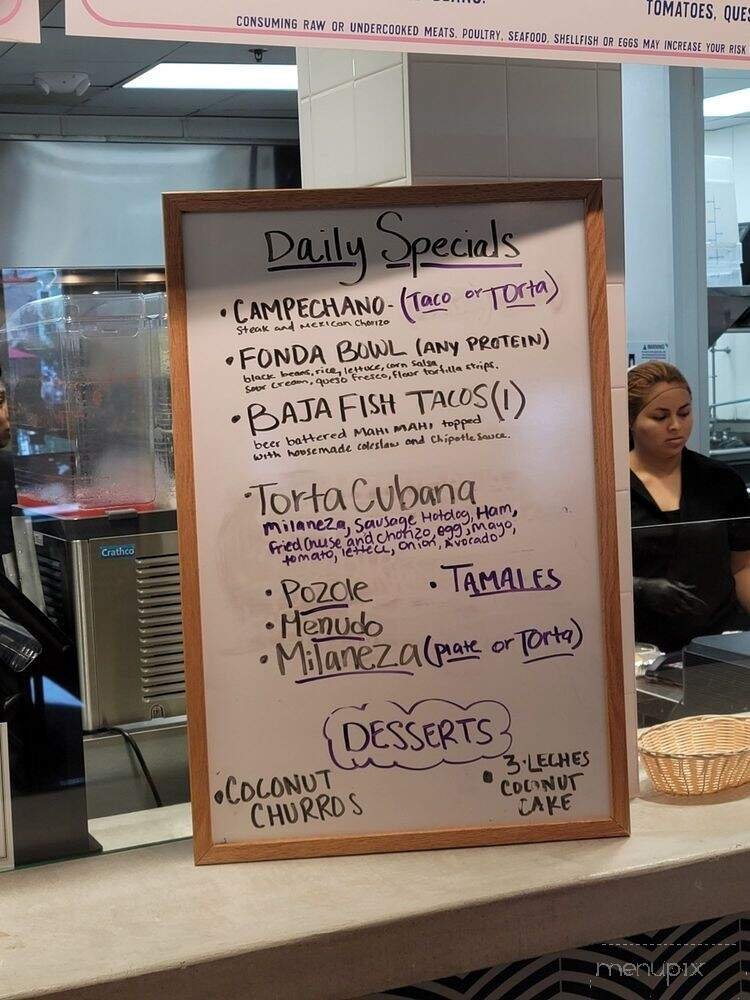 TOMATOES, QUES
CONSUMING RAW OR UNDERCOOKED MEATS, POULTRY, SEAFOOD, SHELLFISH OR EGGS MAY INCREASE YOUR RISK
Daily Specials
• CAMPECHANO - (Taco or TORTA)
Steak and Mexican Chorizo
• FONDA BOWL (ANY PROTEIN)
black beans, rice, lettuce, corn salsa
sour cream, queso fresco, flour tortilla strips.
• BAJA FISH TACOS (1)
beer battered MAHI MAHI topped
with housemade coleslaw and Chipotle sauce.
• Torta Cubana
Milaneza, Sausage Hotdog, Ham,
Fried Chuse and Chorizo, egg, mayo,
tomato, lettece, Onion, Avocado
• Pozole • TAMALES
• Menudo
• Milaneza (plate or Torta)
DESSERTS
• COCONUT
CHURROS
• 3-LECHES
COCONUT
CAKE
Crathco
WARNING
menupix